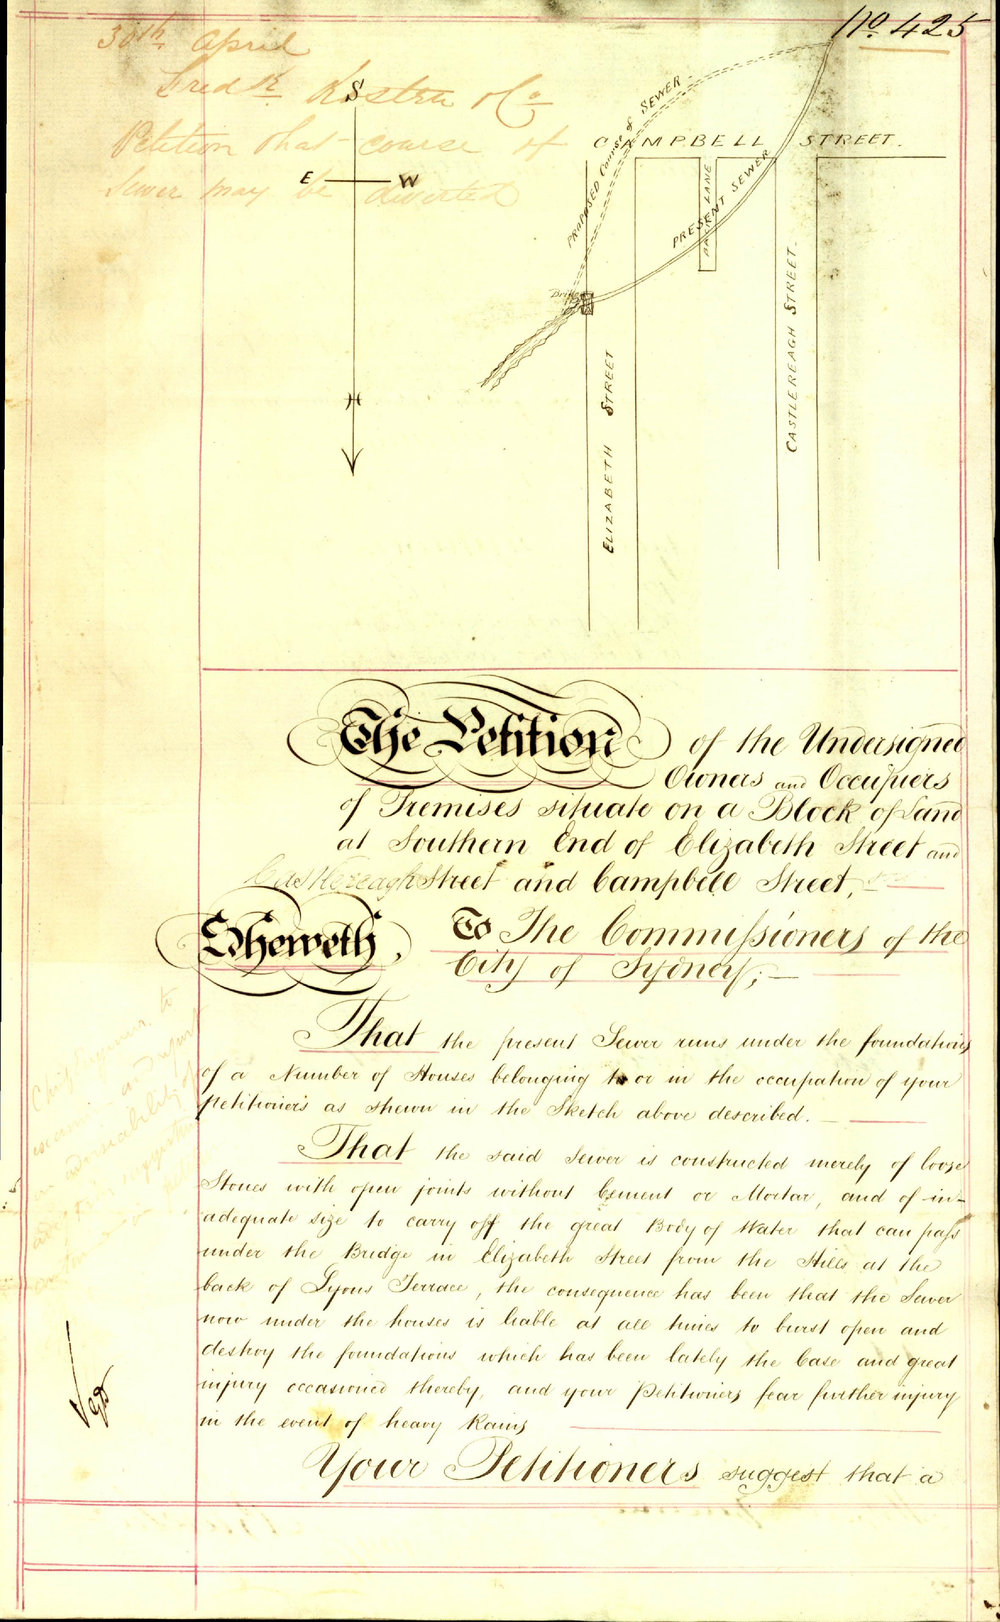 No. 425
30th April
Fredk
Petition that course of
Sewer may be diverted
S
E W
N
PROPOSED Course of SEWER.
CAMPBELL STREET.
LANE
PRESENT SEWER
ELIZABETH STREET
CASTLEREAGH STREET.
The Petition of the Undersigned
Owners and Occupiers
of Premises situate on a Block of Land
at Southern End of Elizabeth Street and
Castlereagh Street and Campbell Street,
Sheweth, To The Commissioners of the
City of Sydney;—
That the present Sewer runs under the foundations
of a Number of Houses belonging to or in the occupation of your
petitioners as shewn in the Sketch above described.—
That the said Sewer is constructed merely of loose
Stones with open joints without Cement or Mortar, and of in-
adequate size to carry off the great Body of Water that can pass
under the Bridge in Elizabeth Street from the Hills at the
back of Lyons Terrace, the consequence has been that the Sewer
now under the houses is liable at all times to burst open and
destroy the foundations which has been lately the Case and great
injury occasioned thereby, and your Petitioners fear further injury
in the event of heavy Rains
Your Petitioners suggest that a